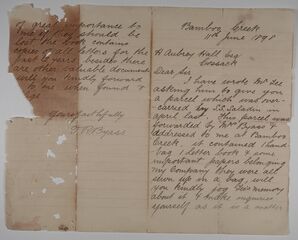 Bamboo Creek
11th June 1898
H Aubrey Hall Esq
Cossack
Dear Sir
I have wrote Mr Lee
asking him to give you
a parcel which was over-
carried on S.S. Saladin in
april last. This parcel was
forwarded by Mrs Byass &
addressed to me at Bamboo
Creek it contained hand
bag 1 letter book & some
important papers belonging
my Company they were all
sewn up in a bag, will
you kindly jog his memory
about it & make enquiries
yourself as it is a matter
of great importance to
me if they should be
lost the book contains
copies of all letters for the
past 2 years, besides there
are other valuable documents
will you kindly forward
to me when found &
Yours faithfully
Byass